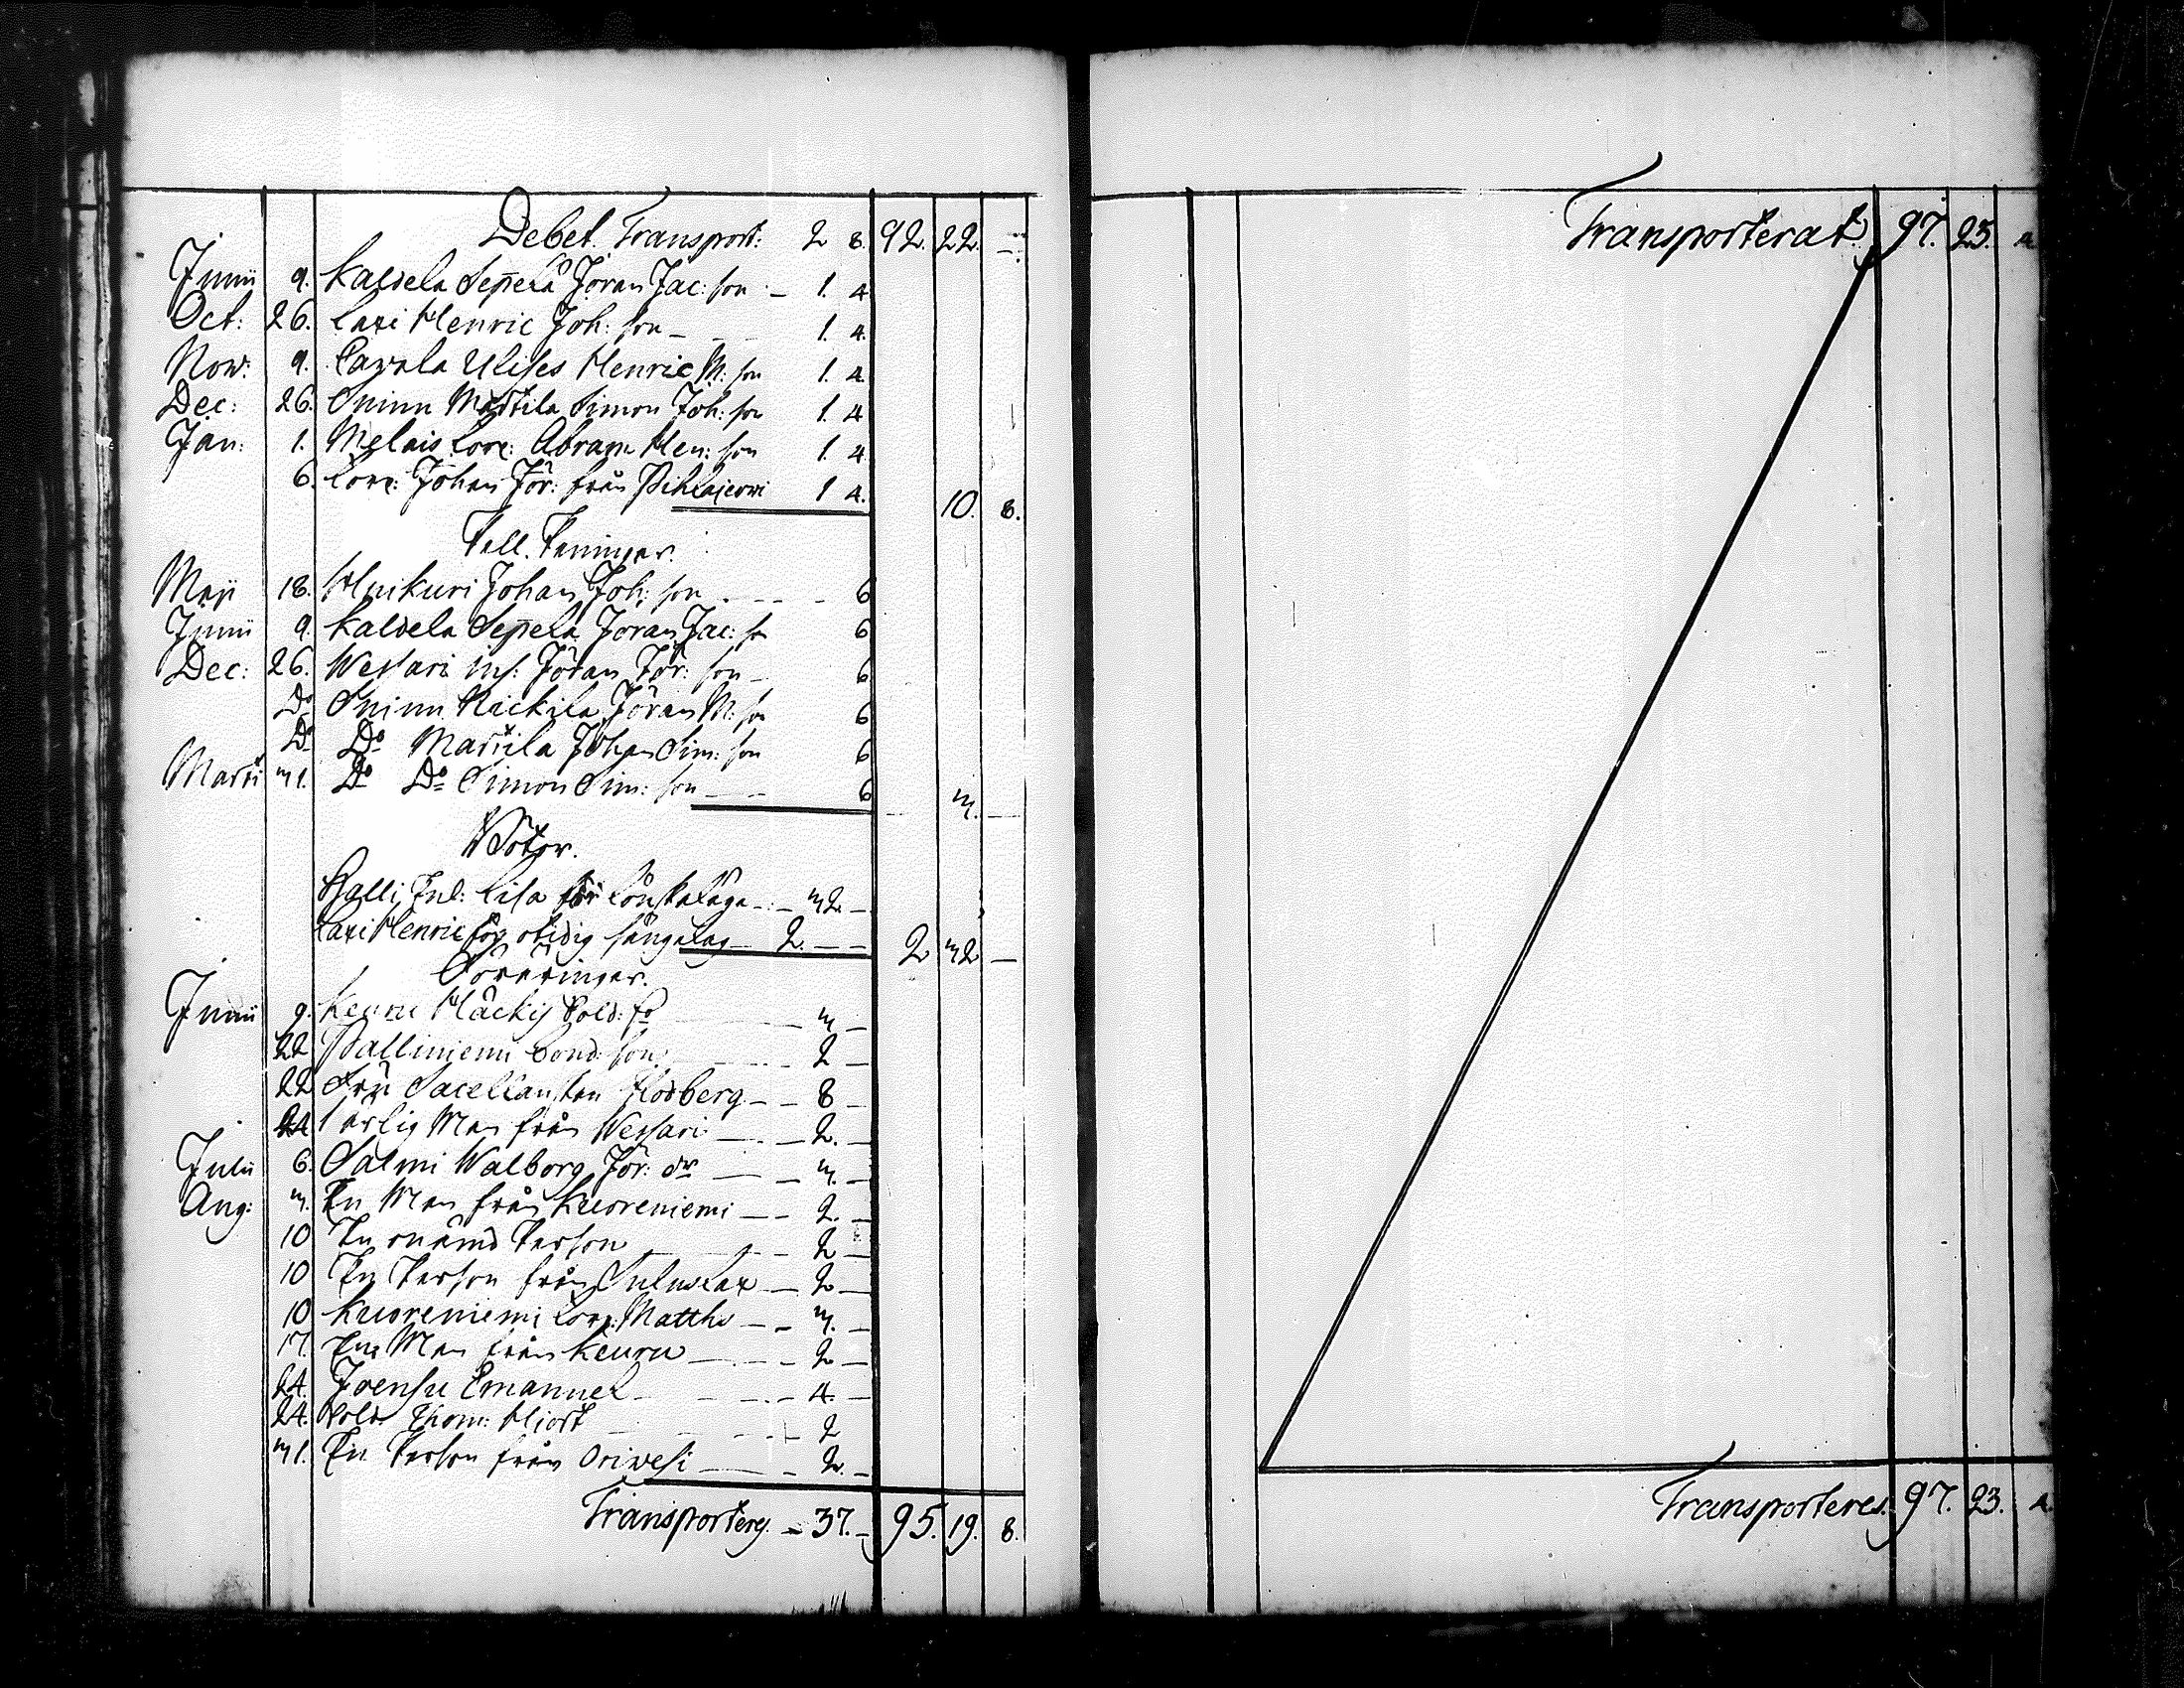 Debet. Transport: 2 8. 92. 22. —
Junii 9. Kaldela Seppelä Jöran Jac: son — 1. 4
Oct: 26. Laxi Henric Joh: son — 1. 4.
Now: 9. Pajala Ulises Henric M: son 1. 4.
Dec: 26. Suinu Martila Simon Joh: son 1. 4
Jan: 1. Melais Corp: Abram Hen: son 1. 4
6. Corp: Johan Jör: från Pihlajcowi 1 4. 10. 8.
Tell. Penningar.
Maji 18. Huikuri Johan Joh: son 6
Junii 9. Kaldela Seppelä Jöran Jac: son 6
Dec: 26. Wessari inh: Jöran Jör: son — 6
Do Suinu Räckilä Jöran M: son 6
Do Do Martila Johan Sim: son 6
Marti 31. Do Do Simon Sim: son 6 3. —
Böter.
Palli Inh: Lisa för Lönskaläge — 32 —
Laxi Henric för otidig sängalag 2. — — 2 32 —
Föräringar.
Junii 9. Keuru Häckij Sold: fr 3 —
22 Palliniemi bond: son 2 —
22 Fru Sacellanskan Flodberg — 8 —
22 1 ärlig Man från Wessari — 2. —
Julii 6. Salmi Walborg Jör: dr — 3. —
Aug: 3. En Man från Kuoreniemi — 2. —
10 En onämd Person — 2 —
10 En Person från Suluslax — 2 —
10 Kuoreniemi Corp: Matths — 3. —
17. En Man från Keuru — 2 —
24. Joensu Emanuel — 4. —
24. Sold: Thom: Hiort 2
31. En Person från Oriwesi — 2. —
Transporteres — 37. — 95. 19. 8.
Transporterat 97. 23. 4
Transporteres. 97. 23. 4.